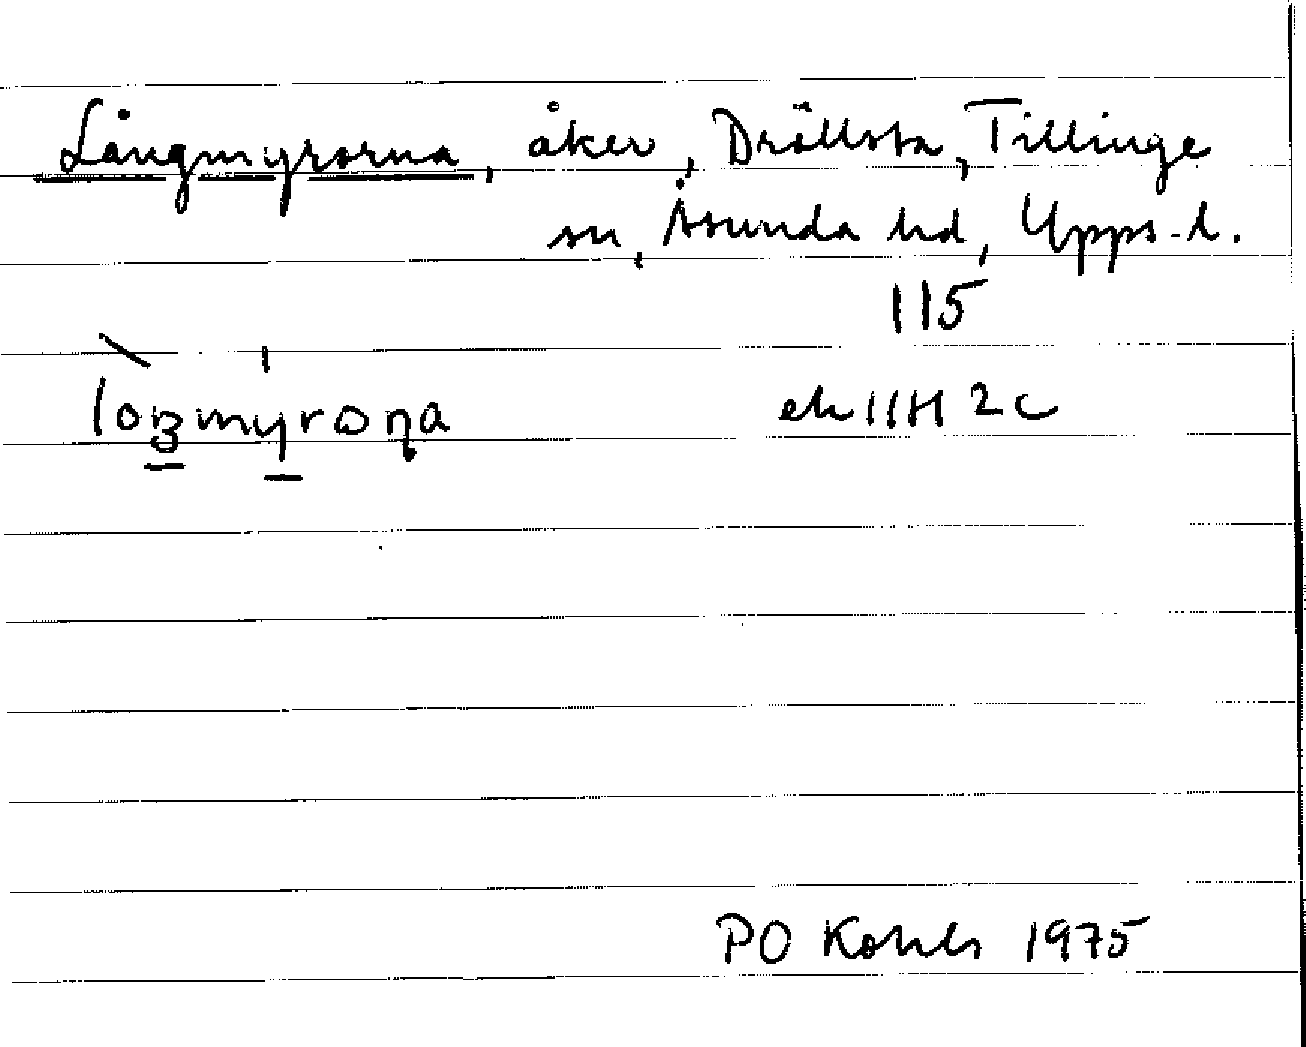 Långmyrorna, åker, Drällsta, Tillinge
sn, Åsunda hd, Upps-l.
115
ek 11H 2c
PO Kohls 1975